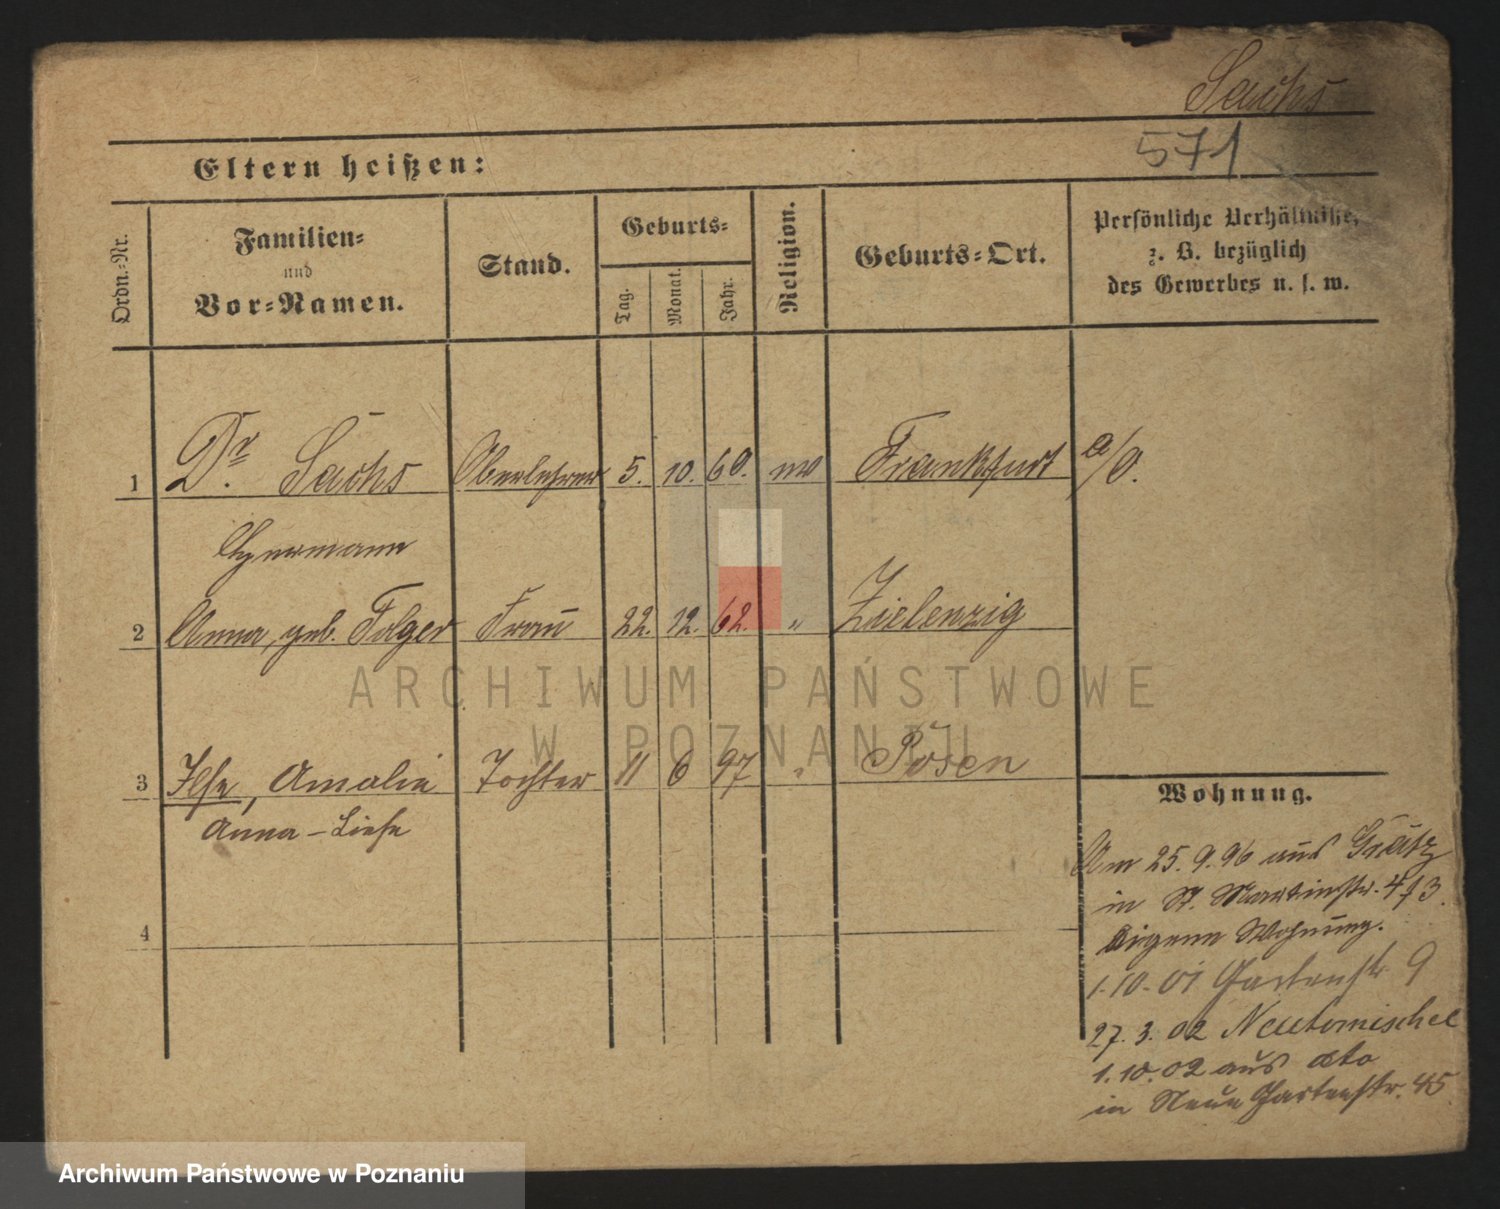 Sachs
571
Eltern heißen:
Ordn.-Nr.
Familien-
und
Vor-Namen.
Stand.
Geburts-
Tag.
Monat.
Jahr.
Religion.
Geburts-Ort.
Persönliche Verhältnisse,
z. B. bezüglich
des Gewerbes u. s. w.
1 Dr. Sachs Oberlehrer 5. 10. 60. Frankfurt a/O.
Hermann
2 Anna, geb. Folger Frau 22. 12. 62. " Zielenzig
3 Ilse, Amalie Tochter 11 6 97 " Posen
Anna-Liese
4
Wohnung.
Am 25.9.96 aus Grätz
in St. Martinstr.
Eigene Wohnung.
1.10.01 Gartenstr 9
27.3.02 Neutomischel
1.10.02 aus dto
in Neue Gartenstr. 45
ARCHIWUM PAŃSTWOWE
W POZNANIU
Archiwum Państwowe w Poznaniu